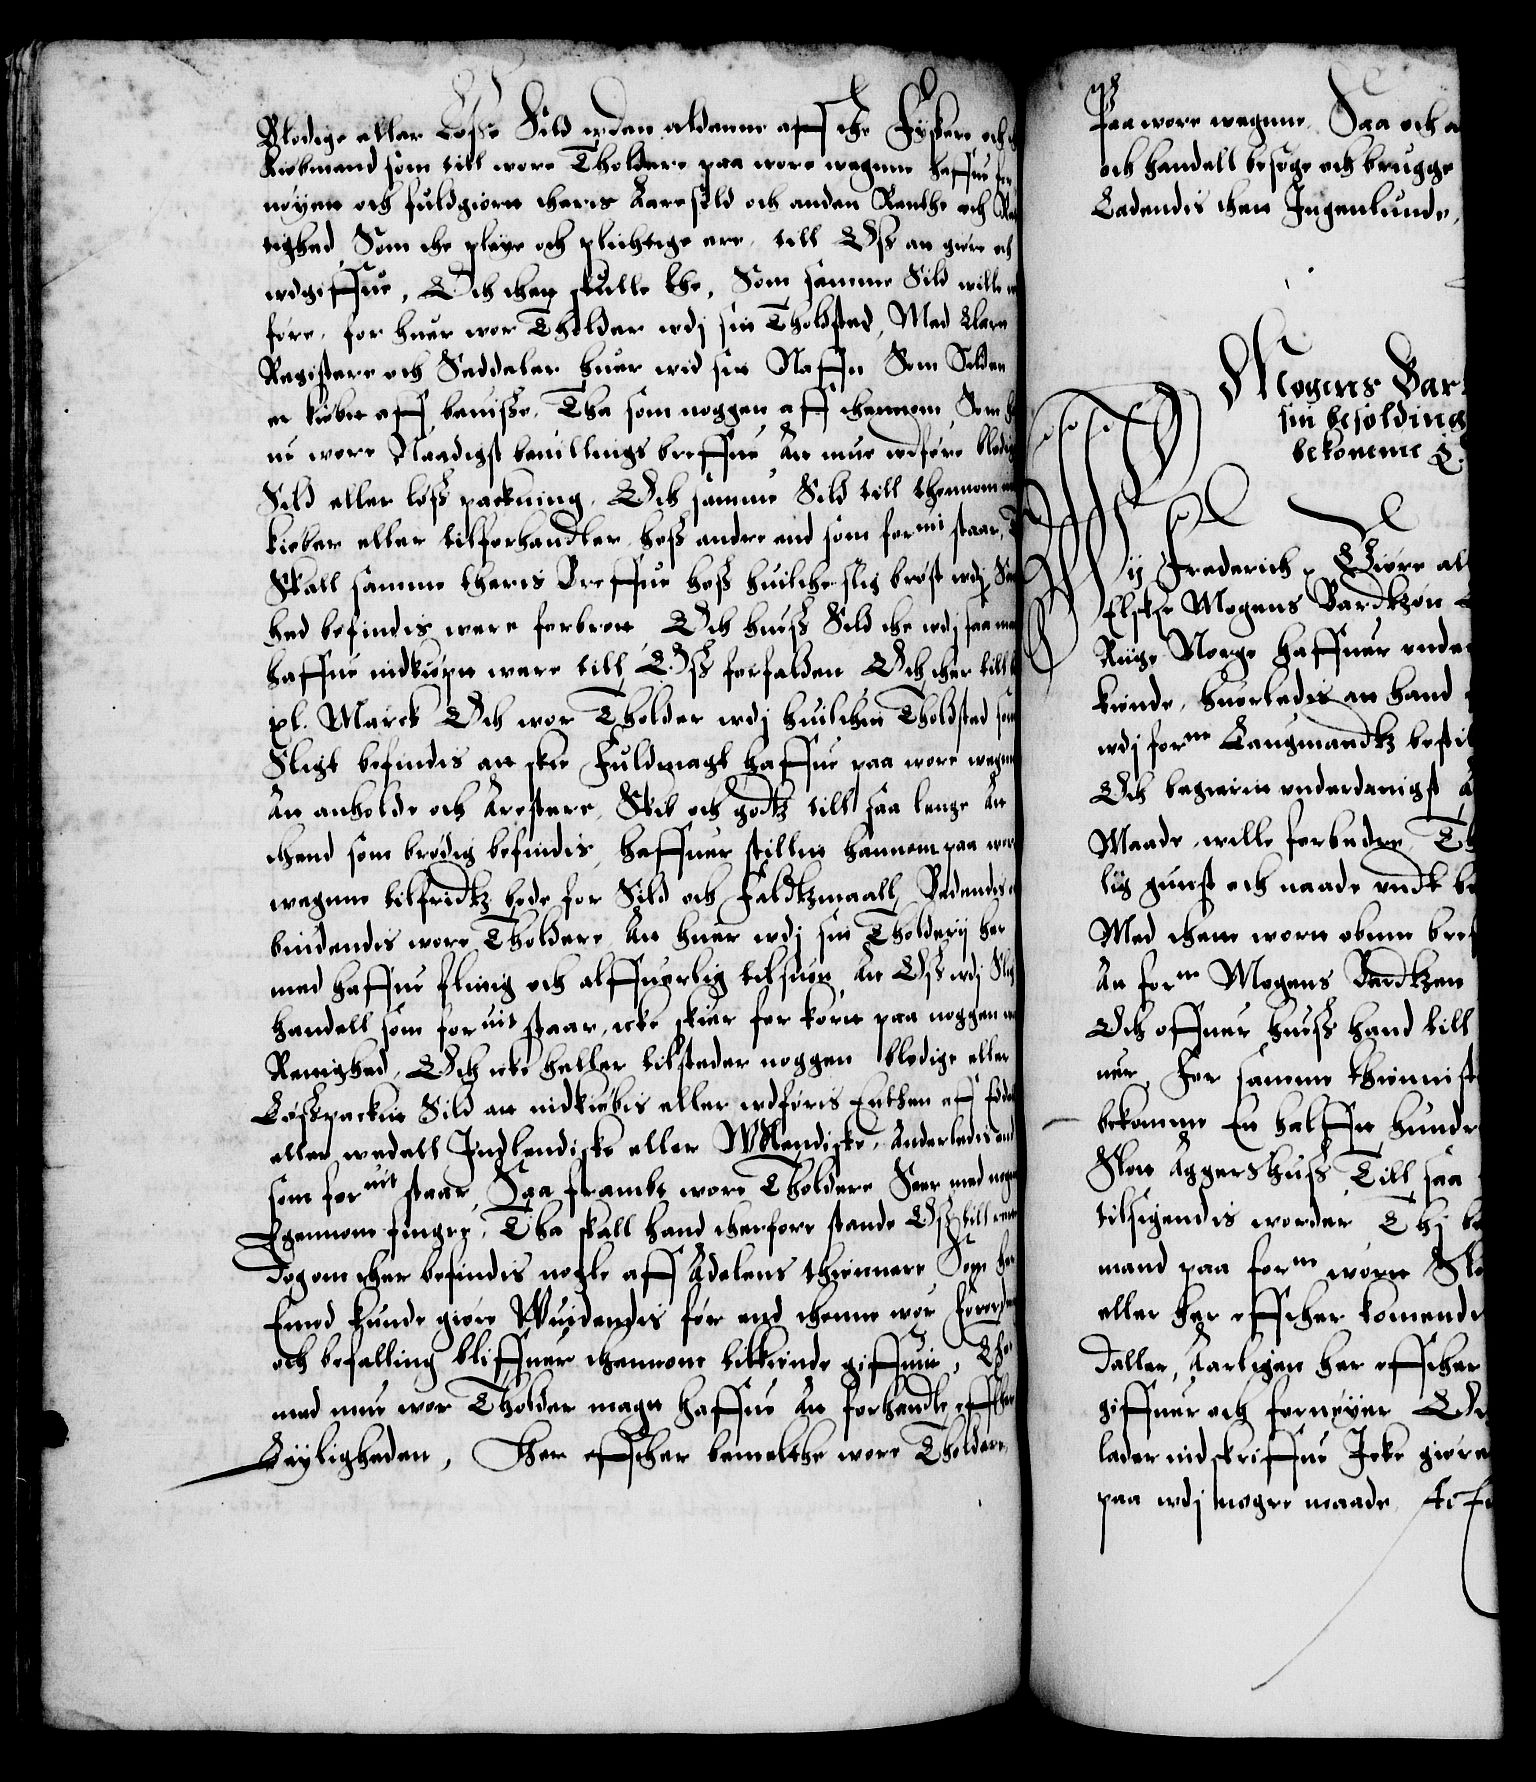 Blodige eller Løsse Sild uden aldenne aff the Fyskere och
Kiøbmend som till wore Tholdere paa wore wegnne haffue for
nøyen och fuldgiorn theris Aaresild och anden Renthe och Ret
tighed, Som the pleye och plichtige ere, till Oss att giøre och
udgiffue, Och then skulle the, Som samme Sild wille
føre, for huer wor Tholder udj sin Tholdsted, Med Klare
Registere och Seddeler huer wid sin Naffn Som Silden
er kiøbtt aff beuisse, Tha som noggen aff thennom Som
nu wore Naadigst beuillings breffue At mue udføre blodig
Sild eller løss packning, Och samme Sild till thennom
kiøber eller tilforhandler hoss andre end som foruit staar,
Skall samme theris Breffue hoss huilche slig brøst udj
hed befindis were forbrott, Och huess Sild the udj saa maade
haffue indkiøpt were till Oss forfalden Och ther till
xl. Marck Och wor Tholder udj huilchen Tholdsted som
Sligt befindis att skie Fuldmagt haffue paa wore wegnne
At anholde och Arestere, Skib och godtz till saa lenge At
thend som brødig befindis, haffuer stillett hannem paa wore
wegnne tilfridtz bode for Sild och Faldtzmaall, Bedendis
bindendis wore Tholdere, At huer udj sin Tholderij her
med haffue flittig och alffuerlig tilsiun, At Oss udj Slig
handell som foruit staar, icke skier for kortt paa noggen
Rettighed, Och icke heller tilsteder noggen blodige eller
Løsspackett Sild att indkiøbis eller udføris Enthen aff
eller wedell Indlendiske eller Wdlendiske, Anderledis end
som foruit staar, Saa frambt wore Tholdere Seer med nogen
Egennom fingre, Tha skall hand therfore stande Oss till rette
Dog om ther befindis nogle aff Adelens thiennere, Som her
Emod kunde giøre Wuidendis før end thenne wor Forordning
och befalling bliffuer thennom tilkiende giffuit, Ther
med mue wor Tholder magtt haffue At forhandle effther
Leyligheden, Ther effther bemelthe wore Tholdere,
Paa wore wegnne, Saa och
och handell besøge och brugge
Ladendis thett Ingenlunde,
Mogens Bar
sin besolding
bekomme
Wij Frederich, Giøre all
Elske Mogens Bardtzøn
Riige Norge haffuer under
kiende, huorledis at hand
udj form Laugmandtz bestil
Och begierit underdanigst
Maade, wille forbedre, Th
lig gunst och naade undt be
Med thette wort obnne breff
At form Mogens Bardtzøn
Och offuer huess hand till
uer, For samme thiennist
bekomme En halff hundr
Slott Aggershuss Till saa
tilsigendis worder Thj be
mand paa form wortt Slo
eller her effther komende
Daller, Aarligen her effther
giffuer och fornøyer Och
lader indskriffue Icke giøre
paa udj nogre maade,